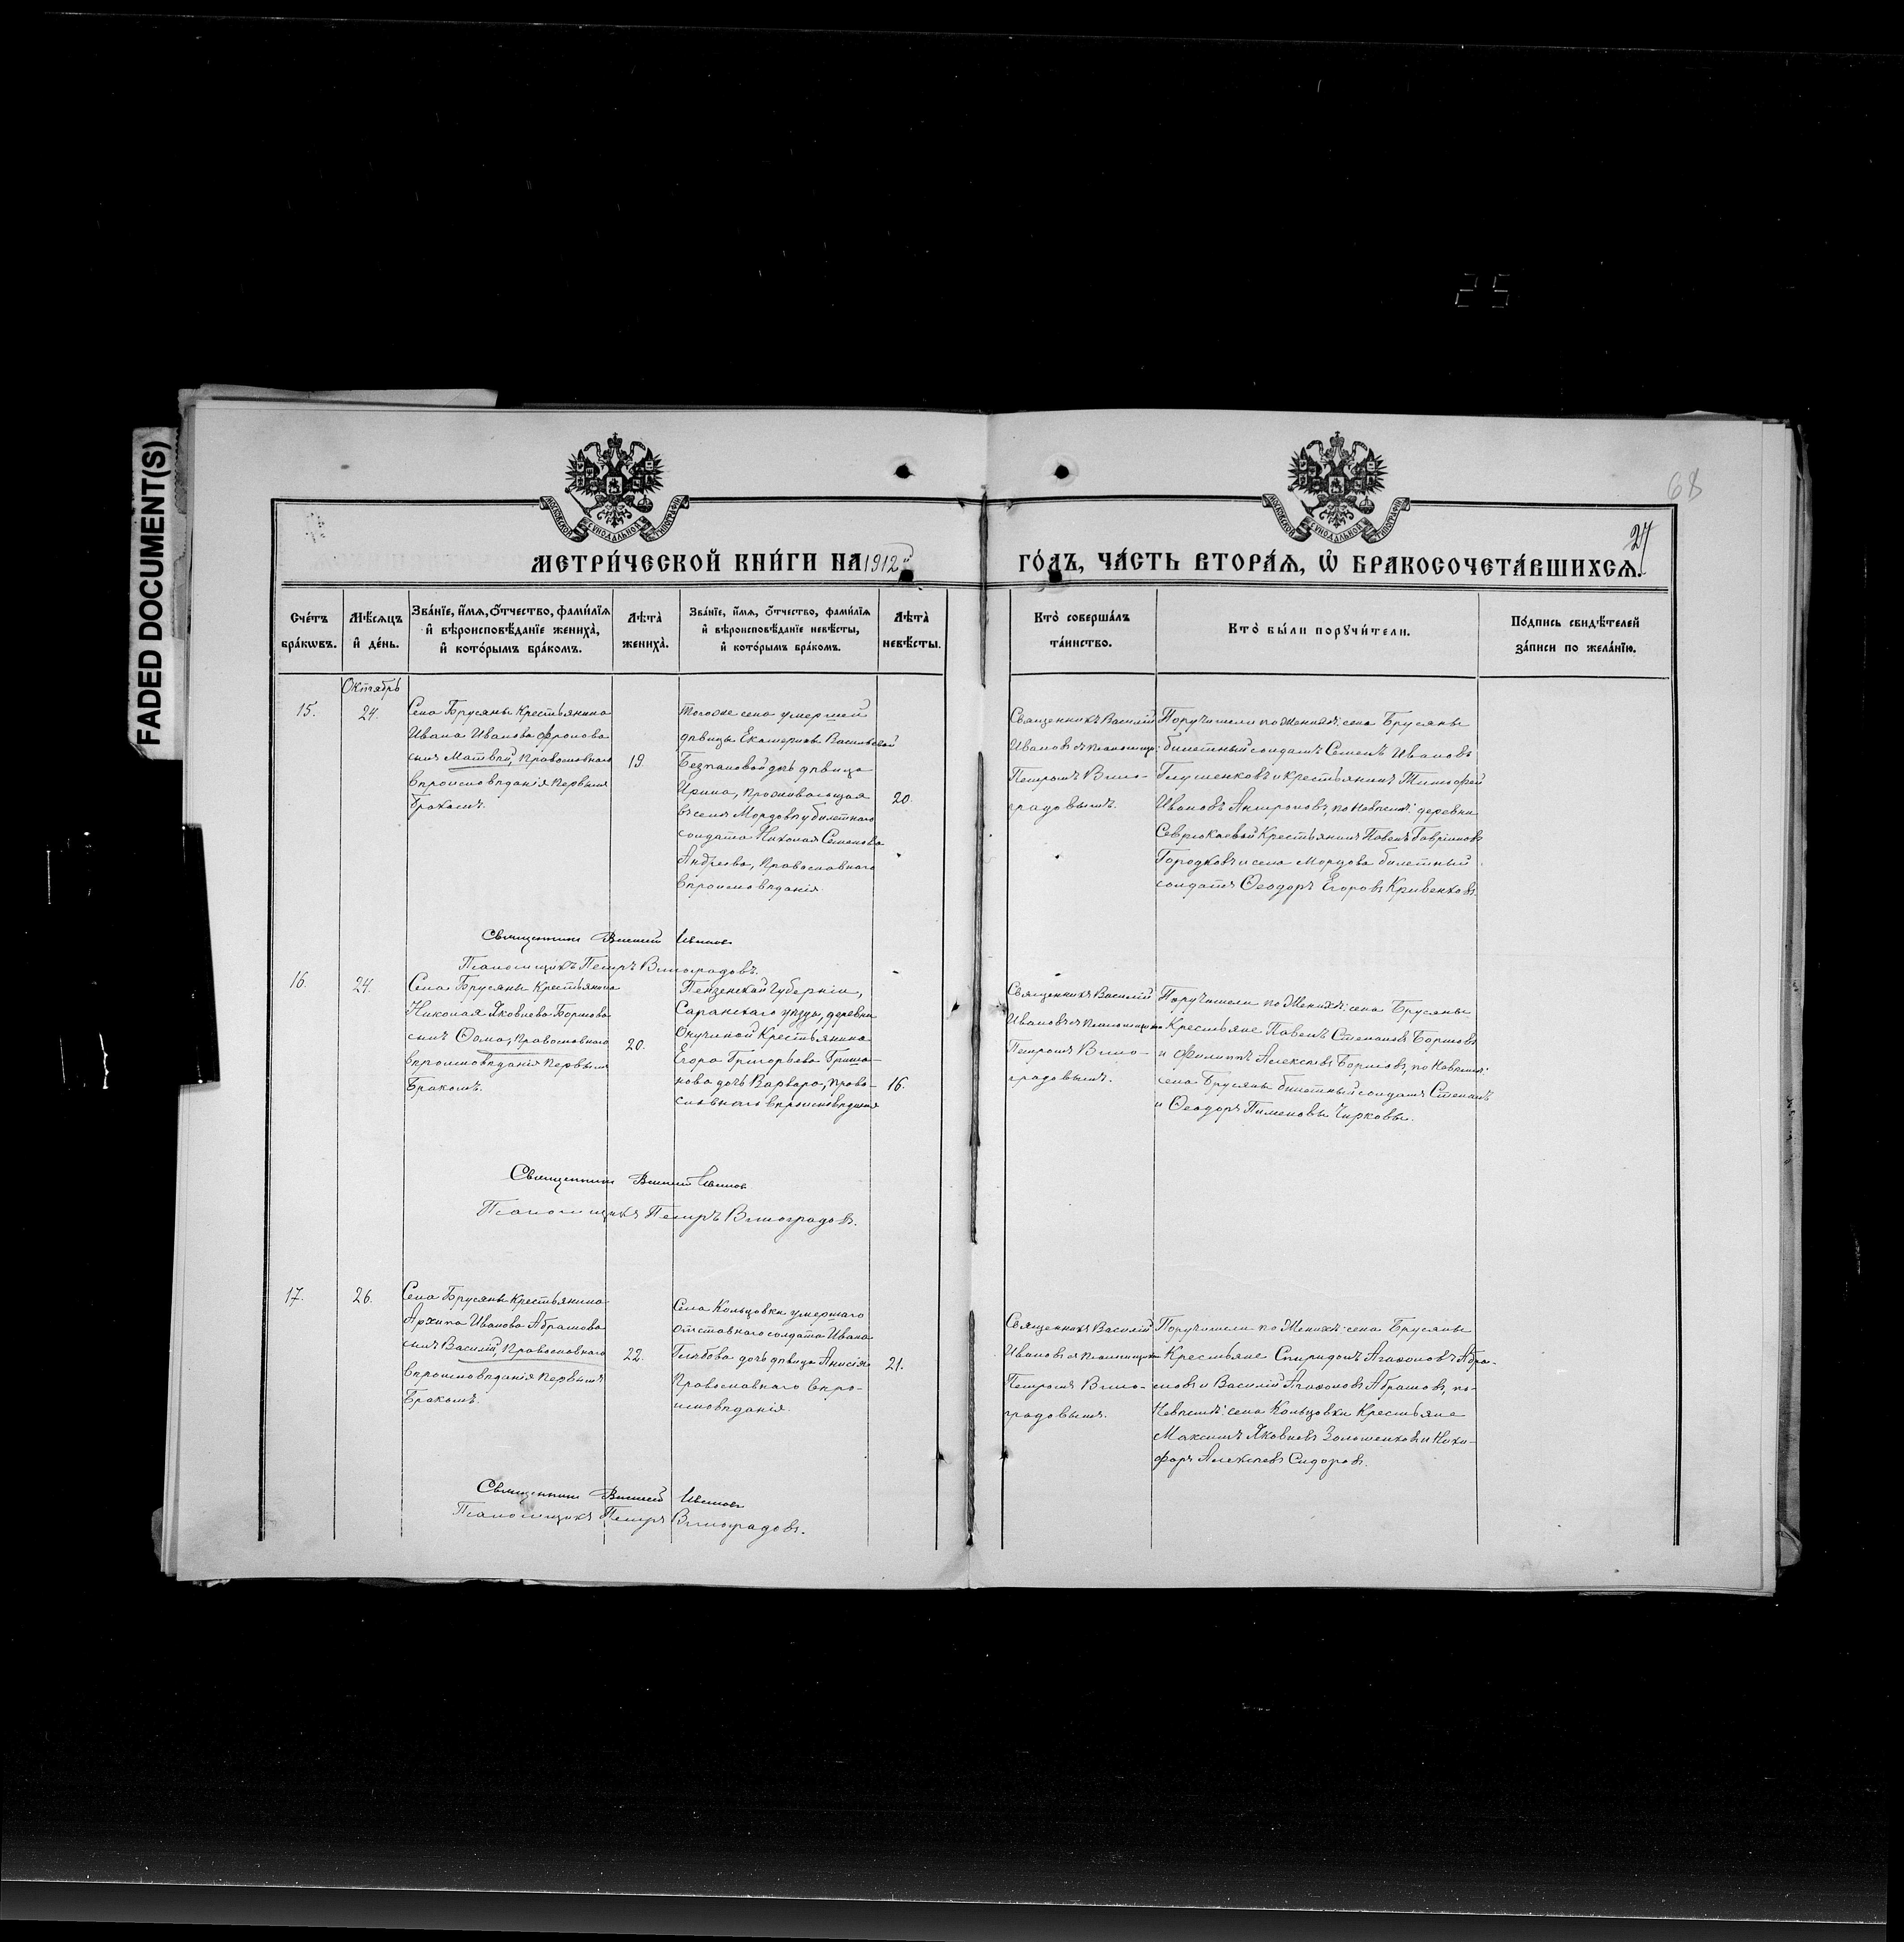 FADED DOCUMENT(S)
25
68
27
МОСКОВСКОЙ СУНОДАЛЬНОЙ ТИПОГРАФІИ
МОСКОВСКОЙ СУНОДАЛЬНОЙ ТИПОГРАФІИ
МЕТРИ́ЧЕСКОЙ КНИ́ГИ НА 1912й
ГО́ДЪ, ЧА́СТЬ ВТОРА́Я, Ѡ҆ БРАКОСОЧЕТА́ВШИХСѦ.
Сче́тъ бра́кѡвъ.
Мѣ́сѧцъ и҆ де́нь.
Зва́нїе, и҆́мѧ, ѻ҆́тчество, фами́лїѧ и҆ вѣроисповѣ́данїе жениха̀, и҆ кото́рымъ бра́комъ.
Лѣ́та̀ жениха̀.
Зва́нїе, и҆́мѧ, ѻ҆́тчество, фами́лїѧ и҆ вѣроисповѣ́данїе невѣ́сты, и҆ кото́рымъ бра́комъ.
Лѣ́та̀ невѣ́сты.
Кто̀ соверша́лъ та́инство.
Кто̀ бы́ли порꙋчи́тели.
По́дпись свидѣ́телей за́писи по жела́нїю.
Октябрь
15.
24.
Села Брусяны Крестьянина
Ивана Иванова Фролова
сынъ Матвѣй, Православнаго
вѣроисповѣданія первымъ
бракомъ.
19
Тогоже села умершей
дѣвицы Екатерины Васильевой
Безпаловой дчь дѣвица
Ирина, проживающая
въ селѣ Мордовѣ у билетнаго
солдата Николая Семенова
Андреева, Православнаго
вѣроисповѣданія.
20.
Священникъ Василій
Ивановъ съ Псаломщи-
Петромъ Вино-
градовымъ.
Поручители по Женихѣ: села Брусяны
билетный солдатъ Семенъ Ивановъ
Глушенковъ и Крестьянинъ Тимофей
Ивановъ Антроповъ, по Невѣстѣ: деревни
Севрюкаевой Крестьянинъ Павелъ Гавриловъ
Городковъ и села Мордова билетный
солдатъ Ѳеодоръ Егоровъ Кривенковъ.
Священникъ Василий Ивановъ
Псаломщикъ Петръ Виноградовъ.
16.
24.
Села Брусяны Крестьянина
Николая Яковлева Боршова
сынъ Ѳома, Православнаго
вѣроисповѣданія первымъ
Бракомъ.
20.
Пензенской Губерніи,
Саранскаго уѣзда, деревни
Окучиной Крестьянина
Егора Григорьева Гриша-
нова дочь Варвара, Право-
славнаго вѣроисповѣданія
16.
Священникъ Василій
Ивановъ съ Псаломщикомъ
Петромъ Вино-
градовымъ.
Поручители по Женихѣ: села Брусяны
Крестьяне Павелъ Степановъ Боршовъ
и Филиппъ Алексѣевъ Боршовъ, по Невѣстѣ:
села Брусяны билетный солдатъ Степанъ
и Ѳеодоръ Пименовы Чирковы.
Священникъ Василий Ивановъ
Псаломщикъ Петръ Виноградовъ.
17.
26.
Села Брусяны Крестьянина
Архипа Иванова Абрамова
сынъ Василій, Православнаго
вѣроисповѣданія первымъ
Бракомъ.
22.
Села Кольцовки умершаго
отставнаго солдата Ивана
Глѣбова дочь дѣвица Анисія
Православнаго вѣро-
исповѣданія.
21.
Священникъ Василій
Ивановъ съ Псаломщикомъ
Петромъ Вино-
градовымъ.
Поручители по Женихѣ: села Брусяны
Крестьяне Спиридонъ Агафоновъ Абра-
мовъ и Василій Агафоновъ Абрамовъ, по-
Невѣстѣ: села Кольцовки Крестьяне
Максимъ Яковлевъ Золотенковъ и Ники-
форъ Алексѣевъ Сидоровъ.
Священникъ Василий Ивановъ
Псаломщикъ Петръ Виноградовъ.